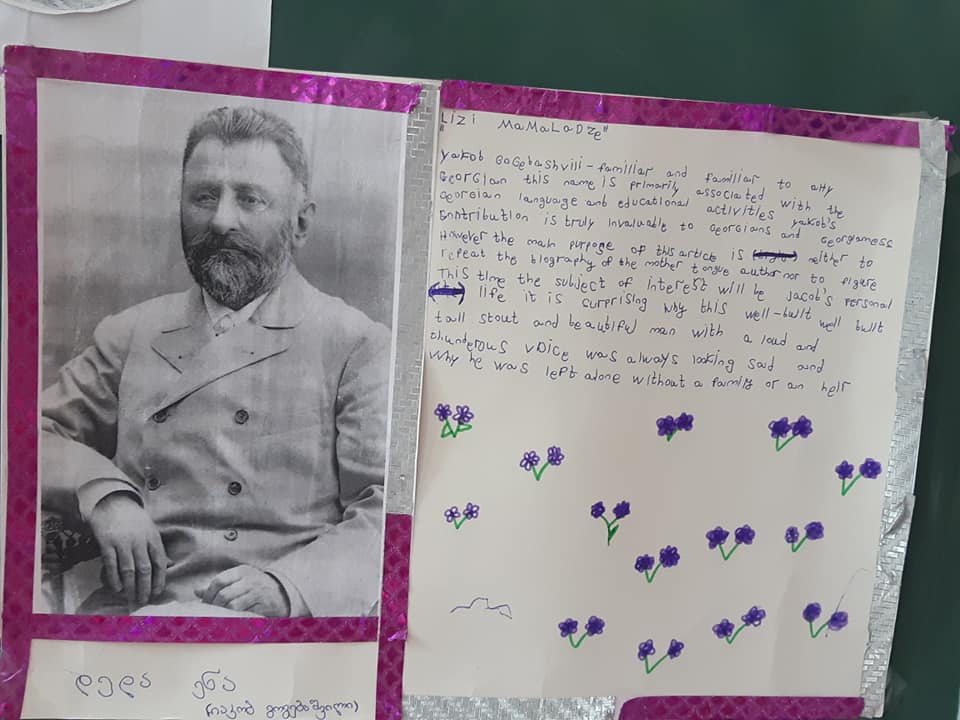 "Lizi MaMaLaDze"
yakob GoGebashvili - familiar and familiar to any
Georgian this name is primarily associated with the
Georgian language and educational activities yakob's
contribution is truly invaluable to Georgians and Georgianess
However the main purpose of this article is neither to
repeat the biography of the mother tongue author nor to figure
This time the subject of interest will be Jacob's personal
life it is surprising why this well-built well built
tall stout and beautiful man with a loud and
thunderous voice was always looking said and
why he was left alone without a family or an heir
დედა ენა
(იაკობ გოგებაშვილი)